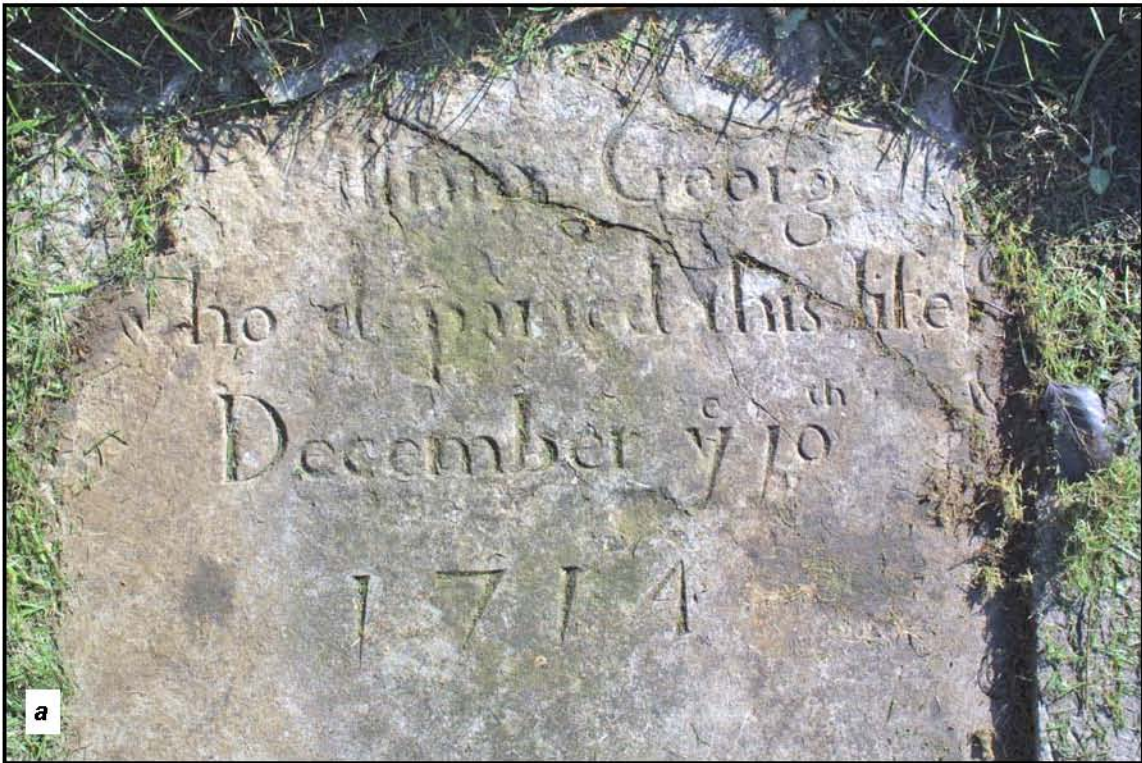 George
who departed this life
December yᵉ 10ᵗʰ
1714
a